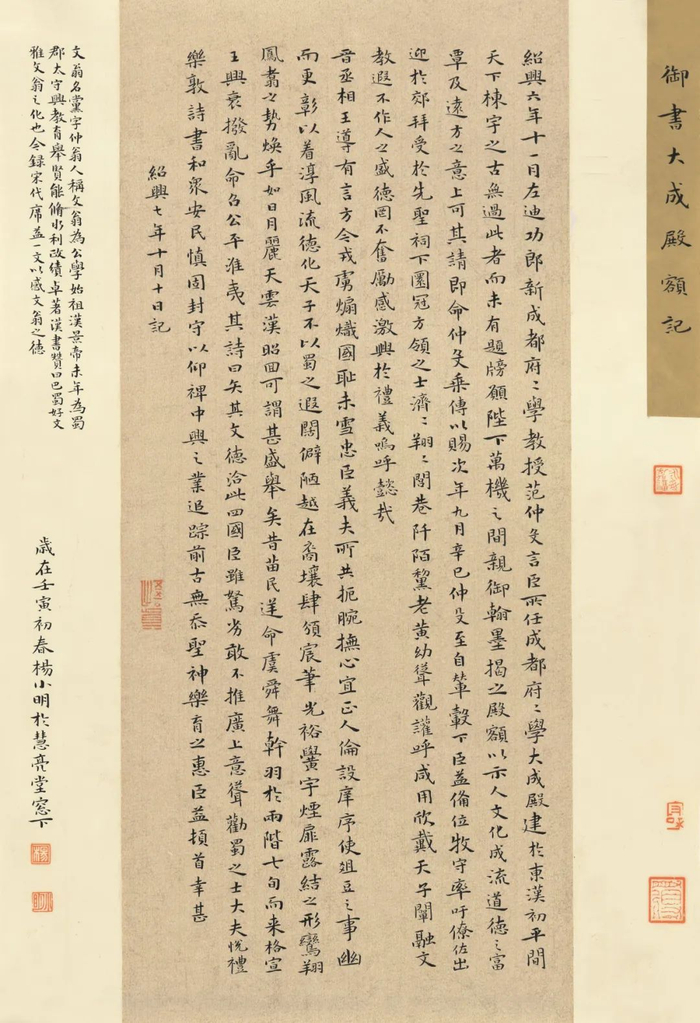 御書大成殿額記
紹興六年十一月左迪功郎新成都府〻學教授范仲殳言臣所任成都府〻學大成殿建於東漢初平間
天下棟宇之古無過此者而未有題牓願陛下萬機之間親御翰墨揭之殿額以示人文化成流道德之富
覃及遠方之意上可其請即命仲殳乘傳以賜次年九月辛巳仲殳至自輦轂下臣益備位牧守率吁僚佐出
迎於郊拜受於先聖祠下圜冠方領之士濟〻翔〻閭巷阡陌黧老黃幼聳觀讙呼咸用欣戴天子闡融文
教遐不作人之盛德罔不奮勵感激興於禮義嗚呼懿哉
晉丞相王導有言方今戎虜煽熾國恥未雪忠臣義夫所共扼腕撫心宜正人倫設庠序使俎豆之事幽
而更彰以着淳風流德化天子不以蜀之遐闊僻陋越在裔壤肆頒宸筆光裕黌宇煙霏露結之形鸞翔
鳳翥之勢煥乎如日月麗天雲漢昭回可謂甚盛舉矣昔苗民逆命虞舜舞幹羽於兩階七旬而来格宣
王興衰撥亂命召公平淮夷其詩曰矢其文德洽此四國臣雖駑劣敢不推廣上意聳勸蜀之士大夫悅禮
樂敦詩書和眾安民慎固封守以仰裨中興之業追踪前古無忝聖神樂育之惠臣益頓首幸甚
紹興七年十月十日記
文翁名黨字仲翁人稱文翁為公學始祖漢景帝末年為蜀
郡太守興教育舉賢能脩水利政績卓著漢書贊曰巴蜀好文
雅文翁之化也今録宋代席益一文以感文翁之德
歲在壬寅初春楊小明於慧亮堂窓下